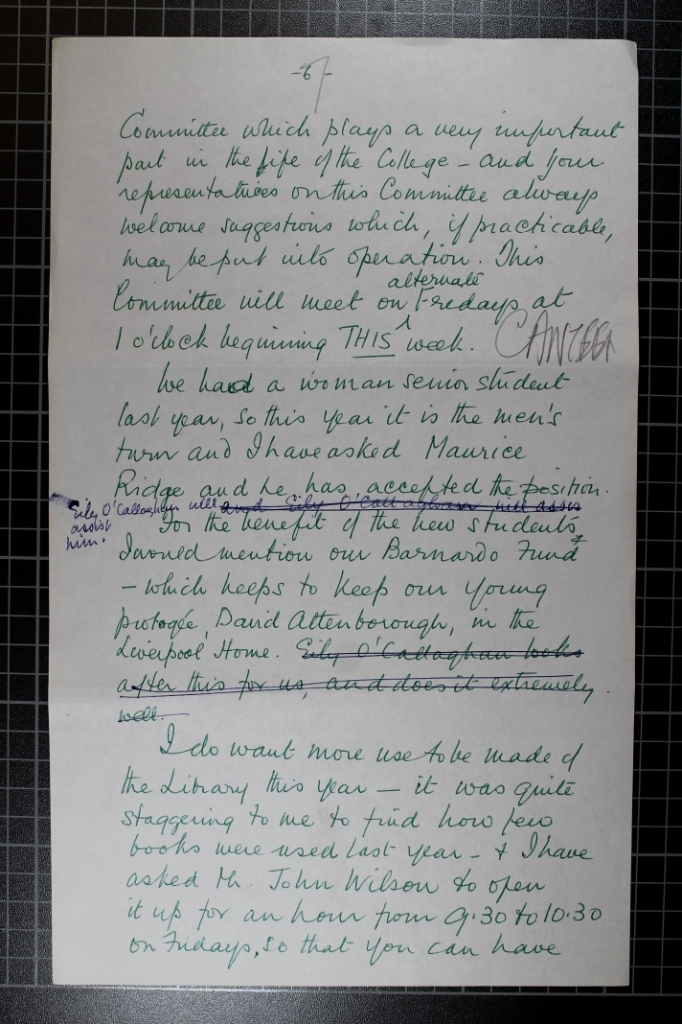 -6-
Committee which plays a very important
part in the life of the College – and your
representatives on this Committee always
welcome suggestions which, if practicable,
may be put into operation. This
alternate
Committee will meet on Fridays at
1 o'clock beginning THIS week. CANTEEN
We had a woman senior student
last year, so this year it is the men's
turn and I have asked Maurice
Ridge and he has accepted the position.
Eily O'Callaghan will and Eily O'Callaghan will assis
assist
him.
For the benefit of the new students
I would mention our Barnardo Fund
– which helps to keep our young
protogée, David Attenborough, in the
Liverpool Home. Eily O'Callaghan looks
after this for us, and does it extremely
well.
I do want more use to be made of
the Library this year – it was quite
staggering to me to find how few
books were used last year – & I have
asked Mr. John Wilson to open
it up for an hour from 9.30 to 10.30
on Fridays, so that you can have